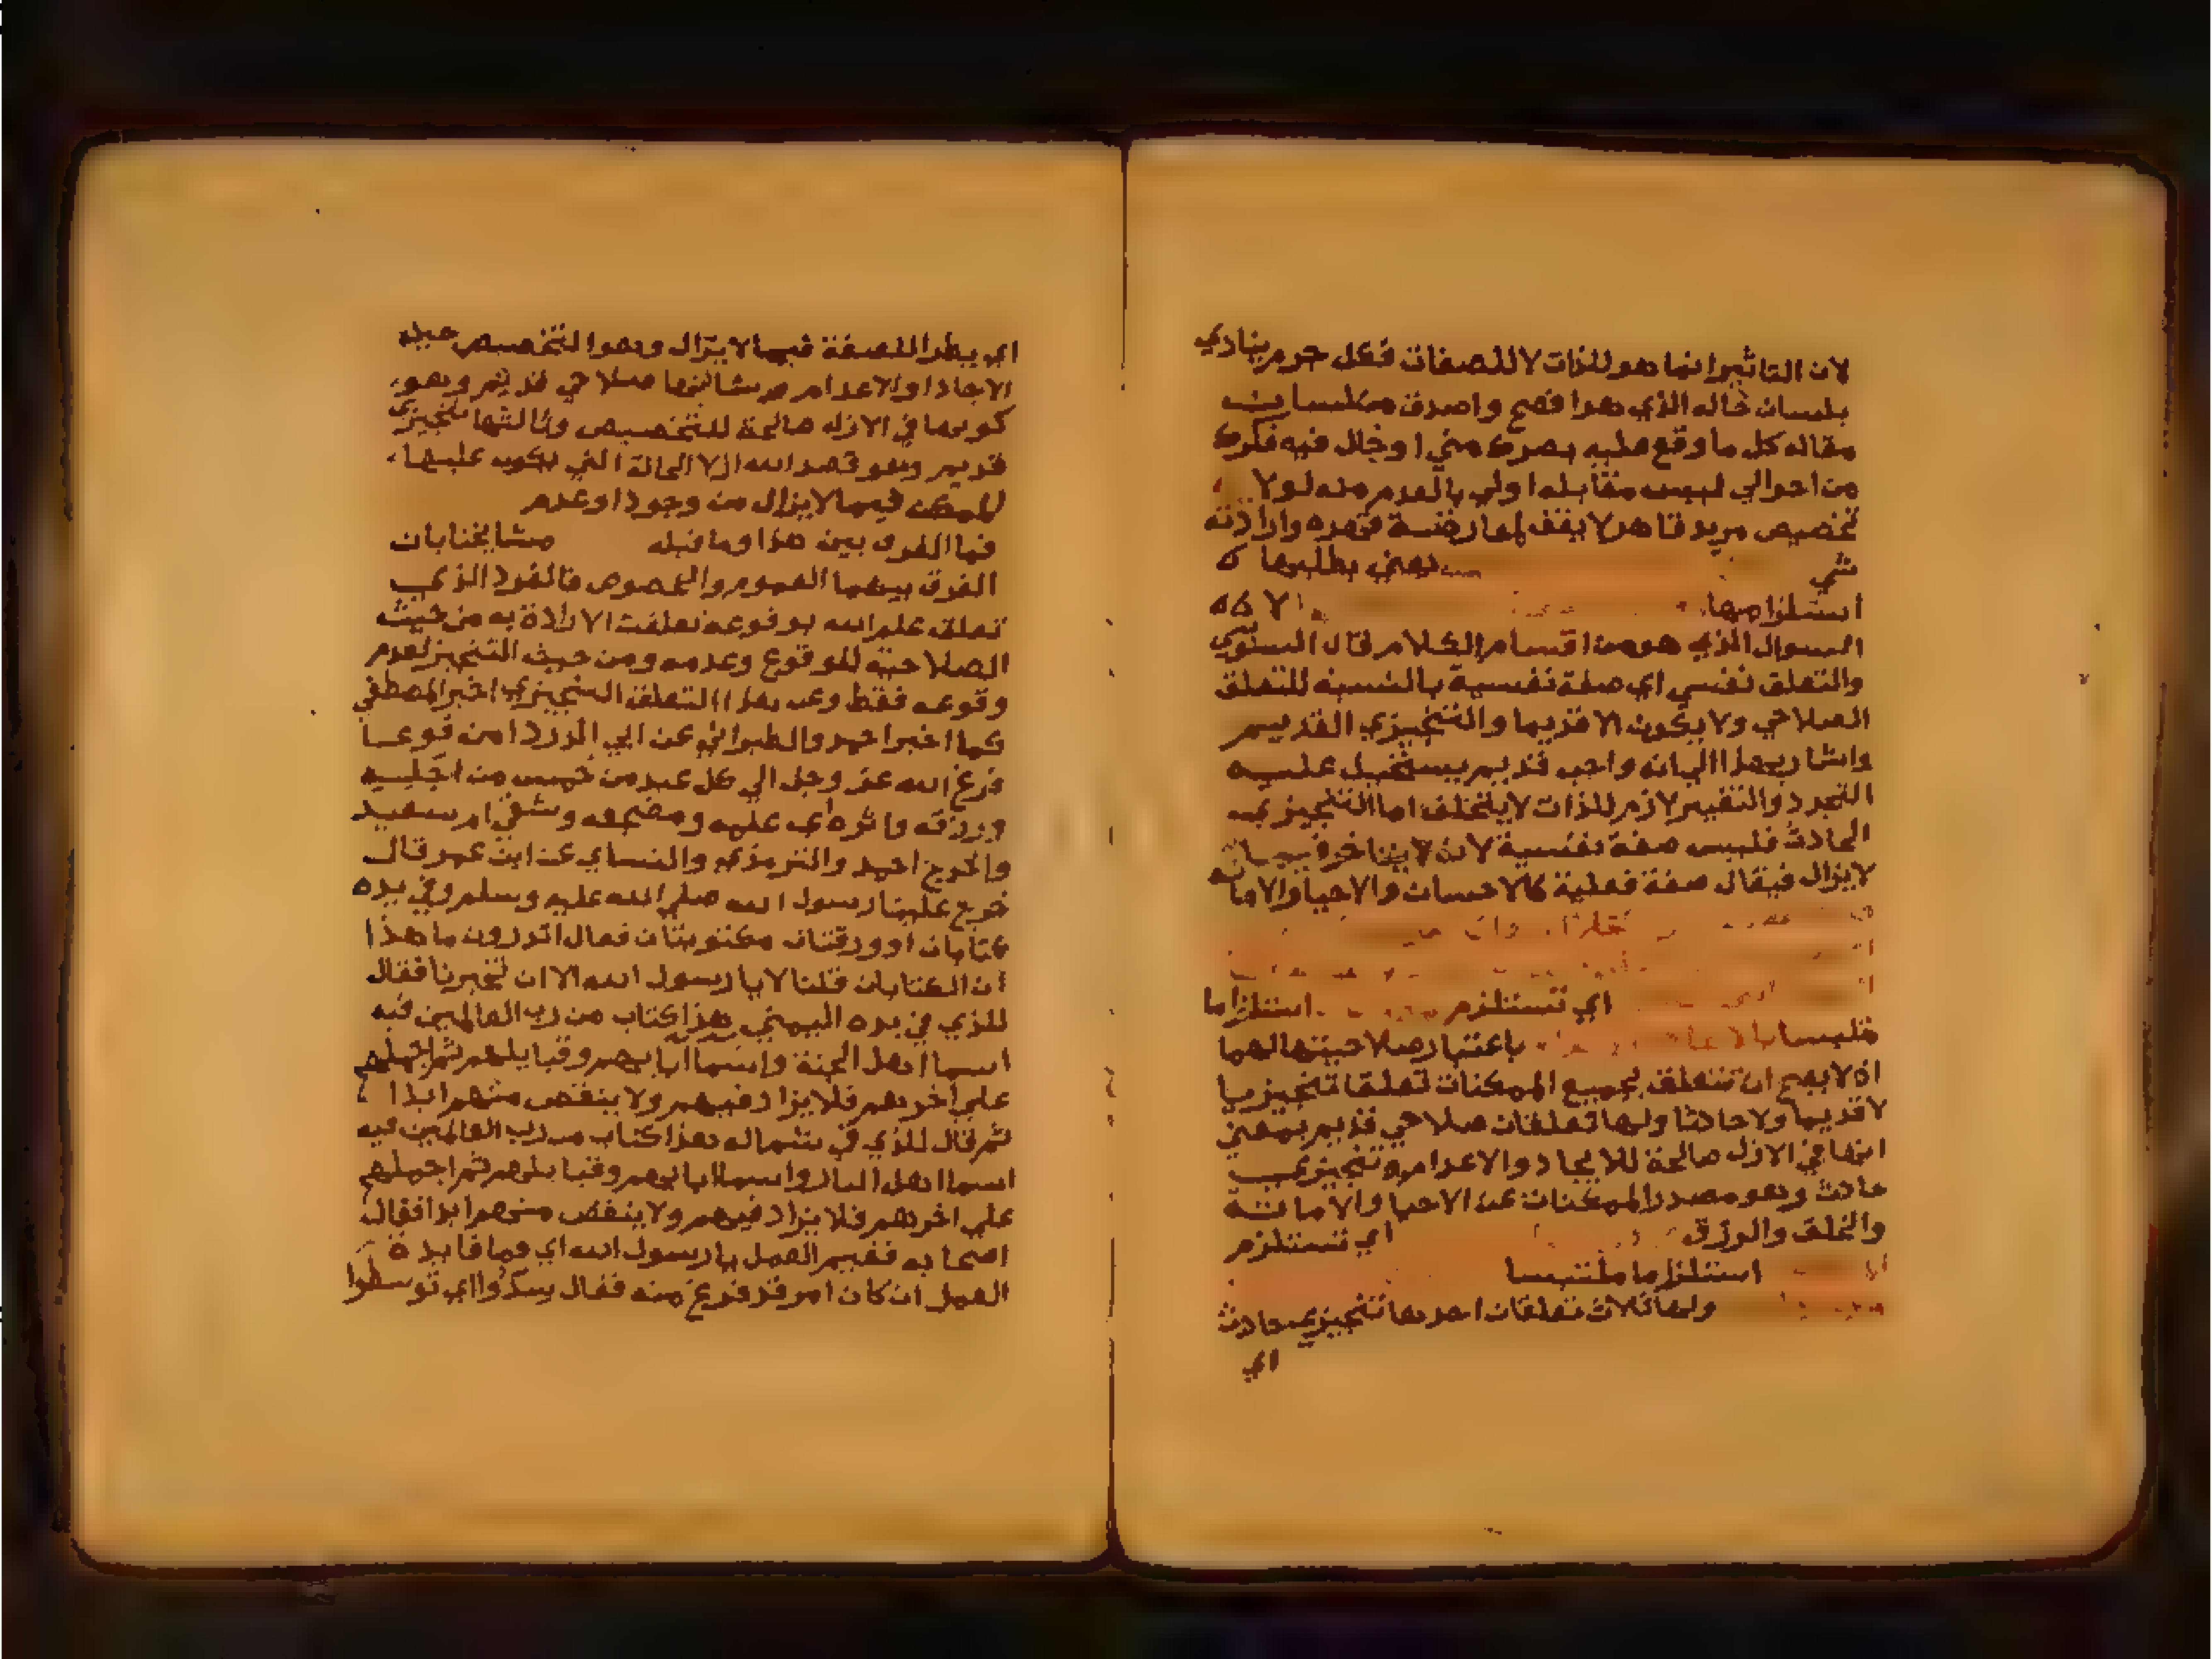 لان التاثير انما هو للذات لا للصفات فكل جرم ينادي
بلسان حاله الذي هو افصح واصدق من لسان
مقاله كل ما وقع عليه بصرك مني او خلل فيه فكرك
من احوالي ليس مقابله اولي بالعدم منه لولا
تخصيص مريد قاهر لا يقف لمعارضة قهره وارادته
شي يعني بطلبها
استلزامها لا
السوال الذي هو من اقسام الكلام قال السنوسي
والتعلق نفسي اي صفة نفسية بالنسبة للتعلق
الصلاحي ولا يكون الا قديما والتنجيزي القديم
واشار بهذا الي انه واجب قديم يستحيل عليه
التجدد والتغيير لازم للذات لا يتخلف اما التنجيزي
الحادث فليس صفة نفسية لانه
لا يزال فيقال صفة فعلية كالاحسان والاحيا والاماتة
اي تستلزم استلزاما
متلبسا باعتبار صلاحيتها لهما
اذ لا يصح ان تتعلق بجميع الممكنات تعلقا تنجيزيا
لا قديما ولا حادثا ولها تعلقان صلاحي قديم بمعني
انها في الازل صالحة للايجاد والاعدام وتنجيزي
حادث وهو مصدر الممكنات عن الاحيا والاماتة
والخلق والرزق اي تستلزم
استلزاما ملتبسا
ولها ثلاث تعلقات احدها تنجيزي حادث
اي
اي يطرا للصفة فيما لا يزال وهو التخصيص حين
الايجاد او الاعدام صلاحي قديم وهو
كونها في الازل صالحة للتخصيص وثالثها تنجيزي
قديم وهو قصد الله الحالة التي يكون عليها
الممكن فيما لا يزال من وجود او عدم
فما الفرق بين هذا وما قبله
الفرق بينهما العموم والخصوص فالفرد الذي
تعلق علم الله بوقوعه تعلقت الارادة به من حيث
الصلاحية للوقوع وعدمه ومن حيث التنجيز لعدم
وقوعه فقط وعن هذا التعلق التنجيزي اخبر المصطفي
كما اخبر احمد والطبراني عن ابي الدردا مرفوعا
فرغ الله عز وجل الي كل عبد من خمس من اجليه
ورزقه واثره اي عليه ومضجعه وشقي ام سعيد
واخرج احمد والترمذي والنساي عن ابن عمر قال
خرج علينا رسول الله صلي الله عليه وسلم وفي يده
كتابان او ورقتان مكتوبتان فقال اتدرون ما هذا
ان الكتابان قلنا لا يا رسول الله الا ان تخبرنا فقال
للذي في يده اليمني هذا كتاب من رب العالمين فيه
اسما اهل الجنة واسما ابايهم وقبايلهم ثم اجملهم
علي اخرهم فلا يزاد فيهم ولا ينقص منهم ابدا
ثم قال للذي في شماله هذا كتاب من رب العالمين فيه
اسما اهل النار واسما ابايهم وقبايلهم ثم اجملهم
علي اخرهم فلا يزاد فيهم ولا ينقص منهم ابدا فقال
اصحابه ففيم العمل يا رسول الله اي وما فايدة
العمل ان كان امر قد فرغ منه فقال سددوا اي توسطوا